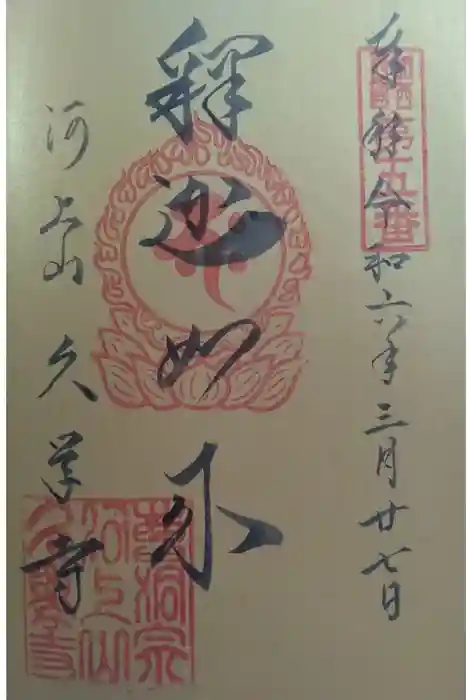 奉拝 令和六年三月廿七日
第十五番
釋迦如来
河上山 久学寺
曹洞宗
河上山
久学寺